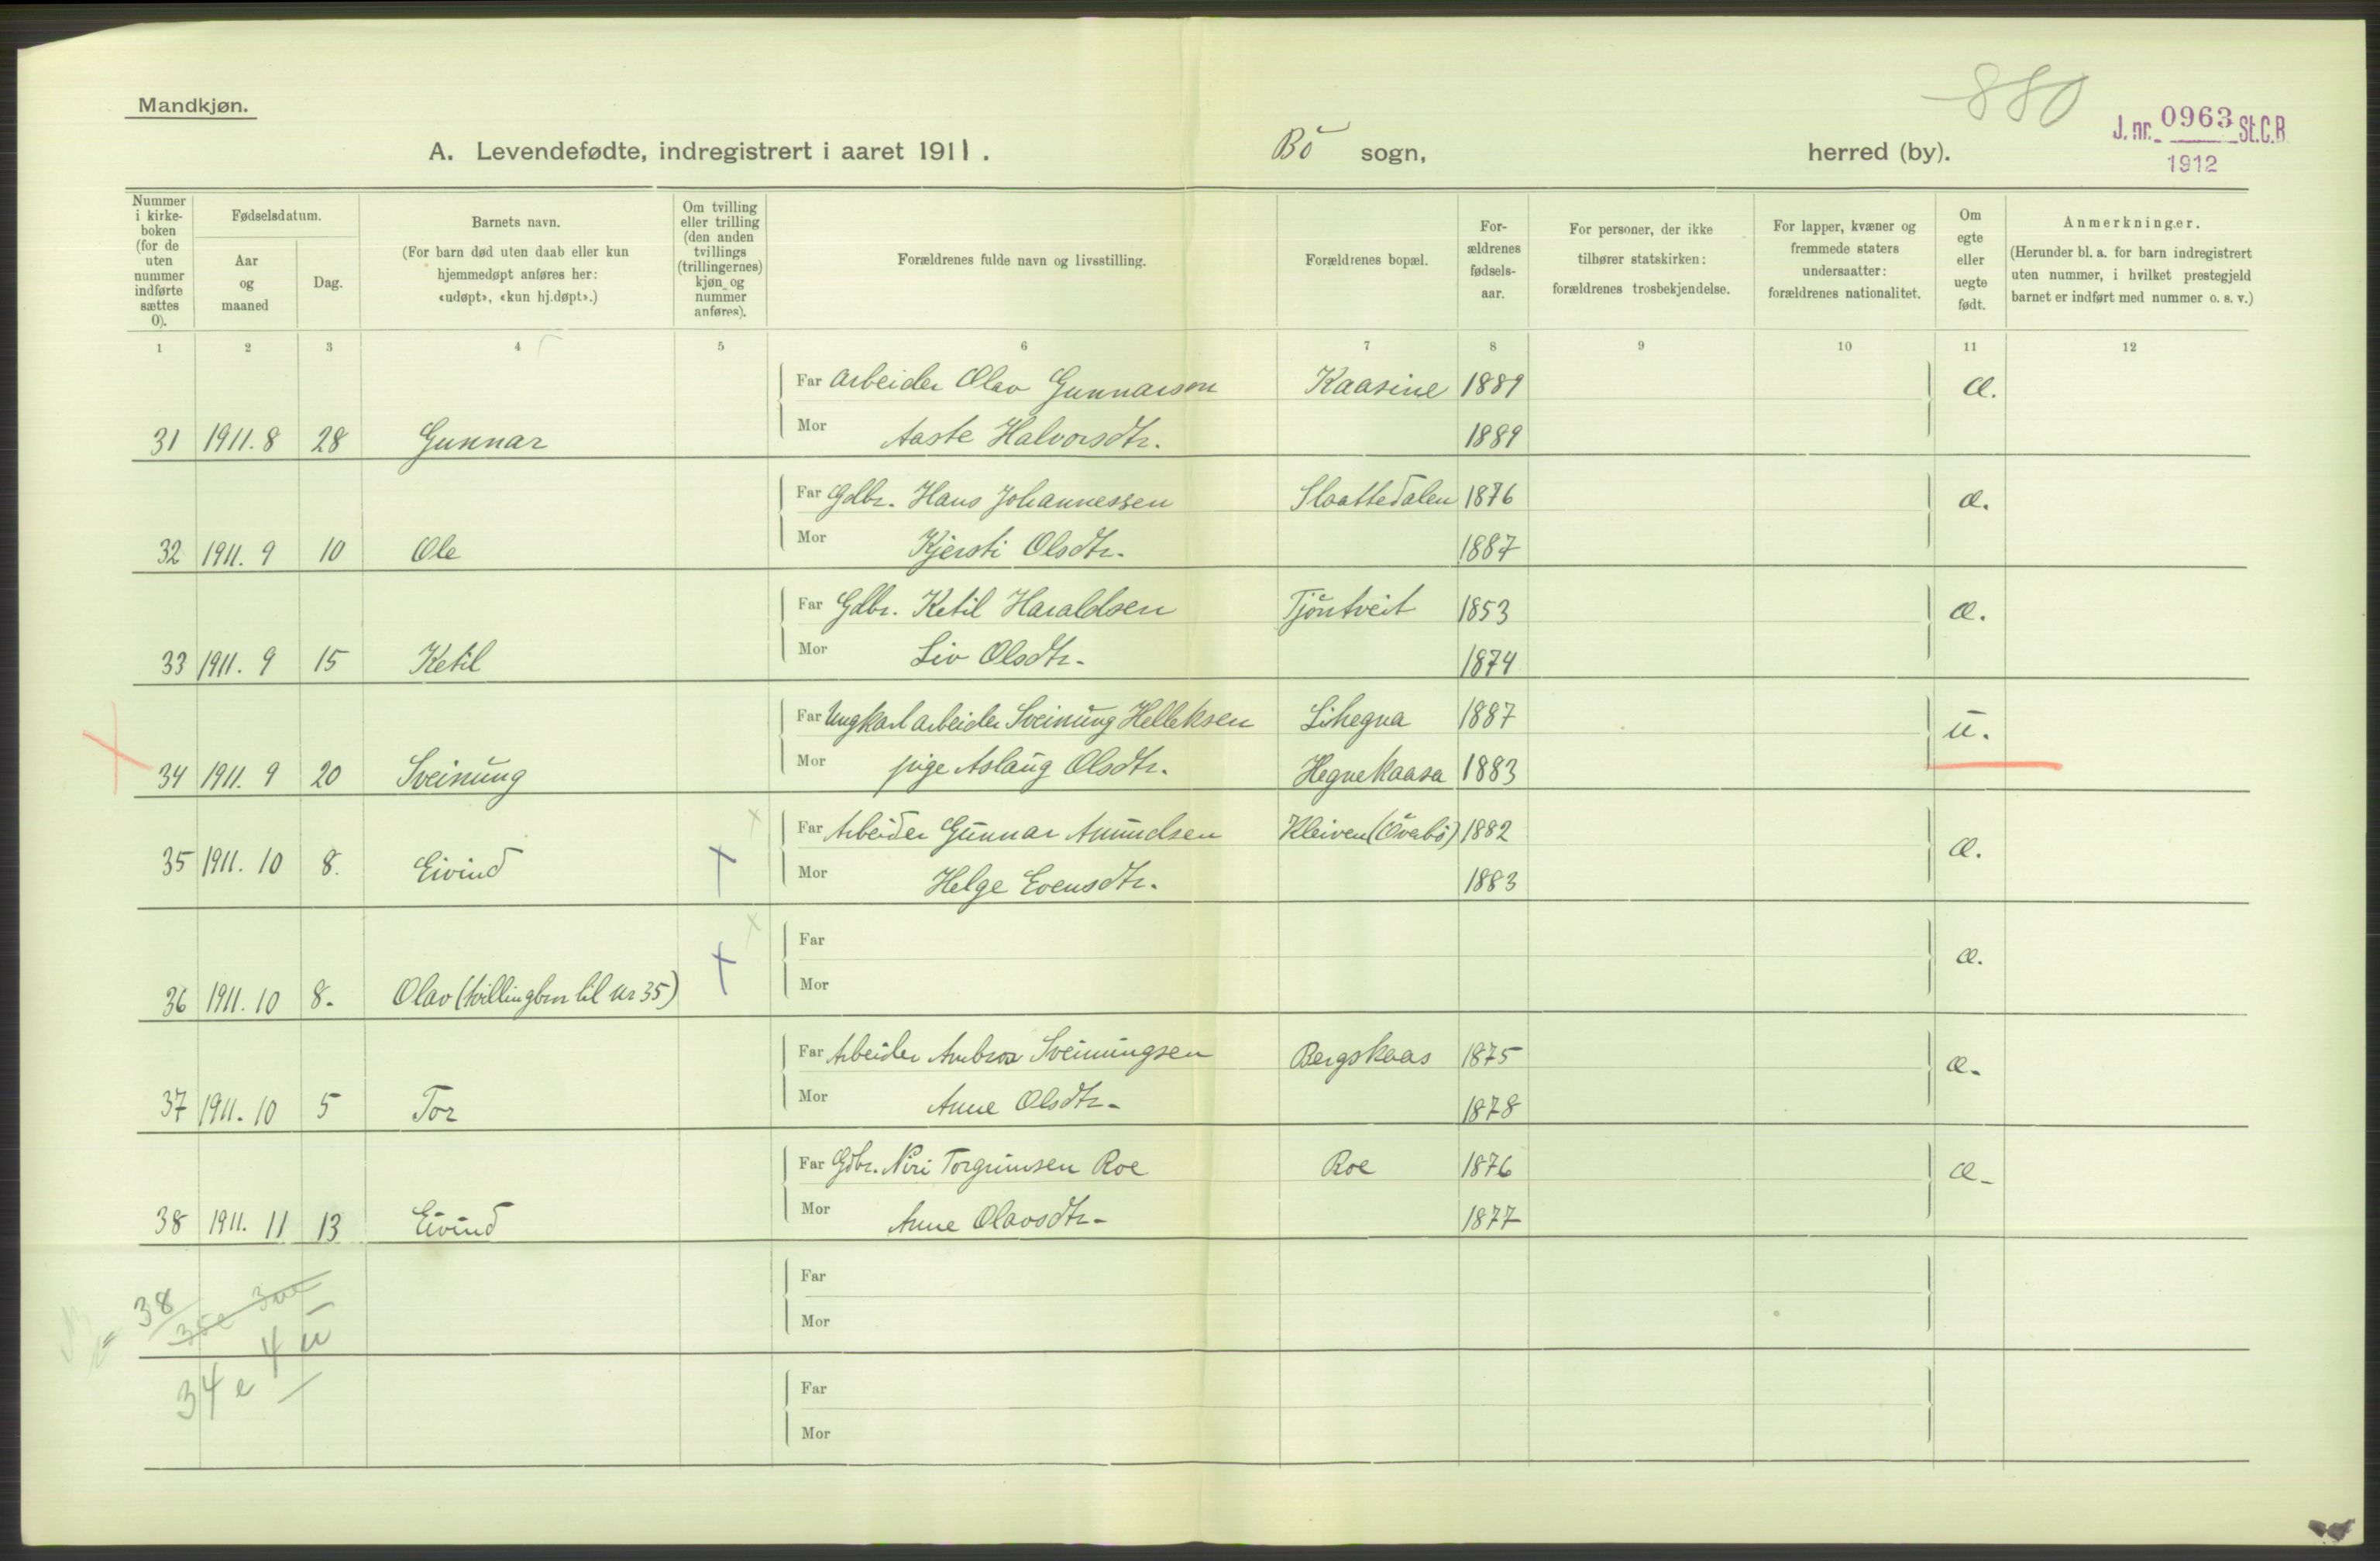 880
Mandkjøn.
J. nr. 0963 St.C.B
1912
A. Levendefødte, indregistrert i aaret 1911. Bö sogn, herred (by).
Nummer i kirke- boken (for de uten nummer indførte sættes 0).
Fødselsdatum.
Aar og maaned
Dag.
Barnets navn.
(For barn død uten daab eller kun hjemmedøpt anføres her: «udøpt», «kun hj.døpt».)
Om tvilling eller trilling (den anden tvillings (trillingernes) kjøn og nummer anføres).
Forældrenes fulde navn og livsstilling.
Forældrenes bopæl.
For- ældrenes fødsels- aar.
For personer, der ikke tilhører statskirken: forældrenes trosbekjendelse.
For lapper, kvæner og fremmede staters undersaatter: forældrenes nationalitet.
Om egte eller uegte født.
Anmerkninger.
(Herunder bl. a. for barn indregistrert uten nummer, i hvilket prestegjeld barnet er indført med nummer o. s. v.)
1 2 3 4 5 6 7 8 9 10 11 12
Far Arbeider Olav Gunnarson Kaasine 1889 æ.
31 1911. 8 28 Gunnar Mor Aaste Halvorsdtr. 1889
Far Gdbr. Hans Johannessen Slaattedalen 1876 æ.
32 1911. 9 10 Ole Mor Kjersti Olsdtr. 1887
Far Gdbr. Ketil Haraldsen Tjöntveit 1853 æ.
33 1911. 9 15 Ketil Mor Liv Olsdtr. 1874
Far Ungkarl arbeider Sveinung Helleksen Lihegna 1887 u.
34 1911. 9 20 Sveinung Mor pige Aslaug Olsdtr. Hegnekaasa 1883
Far Arbeider Gunnar Amundsen Kleiven (Överbö) 1882 æ.
35 1911. 10 8. Eivind Mor Helge Evensdtr. 1883
Far æ.
36 1911. 10 8. Olav (tvillingbror til nr 35) Mor
Far Arbeider Ambros Sveinungsen Bergskaas 1875 æ.
37 1911. 10 5 Tor Mor Anne Olsdtr. 1878
Far Gdbr. Niri Torgrimsen Roe Roe 1876 æ.
38 1911. 11 13 Eivind Mor Anne Olavsdtr. 1877
Far
38
35e 3ue
Mor
4 u
34 e
Far
Mor